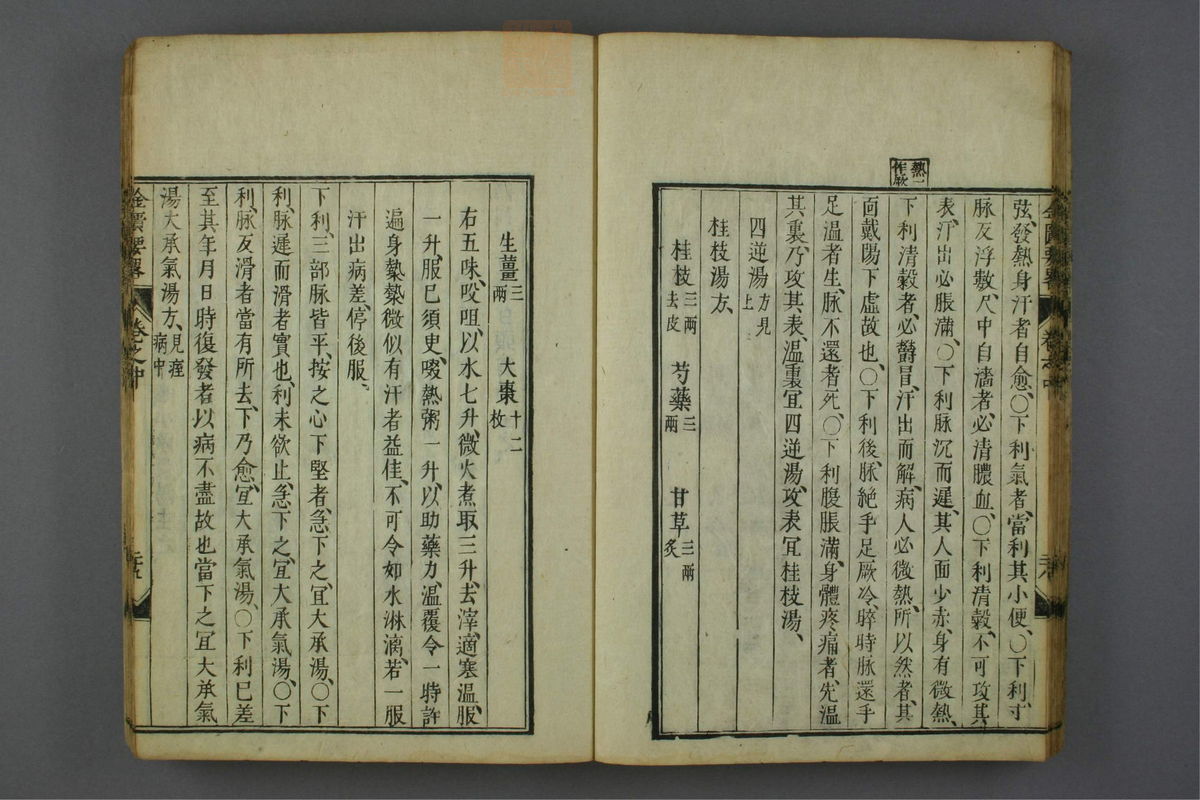 熱一
作厥
弦、發熱身汗者自愈、○下利氣者、當利其小便、○下利、寸
脉反浮數、尺中自濇者、必清膿血、○下利清穀、不可攻其
表、汗出必脹滿、○下利脉沉而遲、其人面少赤、身有微熱、
下利清穀者、必欝冒、汗出而解、病人必微熱、所以然者、其
面戴陽下虛故也、○下利後、脉絕手足厥冷、晬時脉還手
足温者生、脉不還者死、○下利腹脹滿、身體疼痛者、先温
其裏、乃攻其表、温裏宜四逆湯、攻表宜桂枝湯、
四逆湯方見上
桂枝湯方、
桂枝三兩去皮 芍藥三兩 甘草三兩炙
生薑三兩 大棗十二枚
右五味、㕮咀、以水七升、微火煮取三升、去滓、適寒温、服
一升、服已須臾、啜熱粥一升、以助藥力、温覆令一時許
遍身漐漐微似有汗者益佳、不可令如水淋漓、若一服
汗出病差、停後服、
下利、三部脉皆平、按之心下堅者、急下之、宜大承湯、○下
利、脉遲而滑者實也、利未欲止、急下之、宜大承氣湯、○下
利、脉反滑者當有所去、下乃愈、宜大承氣湯、○下利已差
至其年月日時復發者以病不盡故也當下之宜大承氣
湯大承氣湯方、見痙病中
金匱要略 卷之中